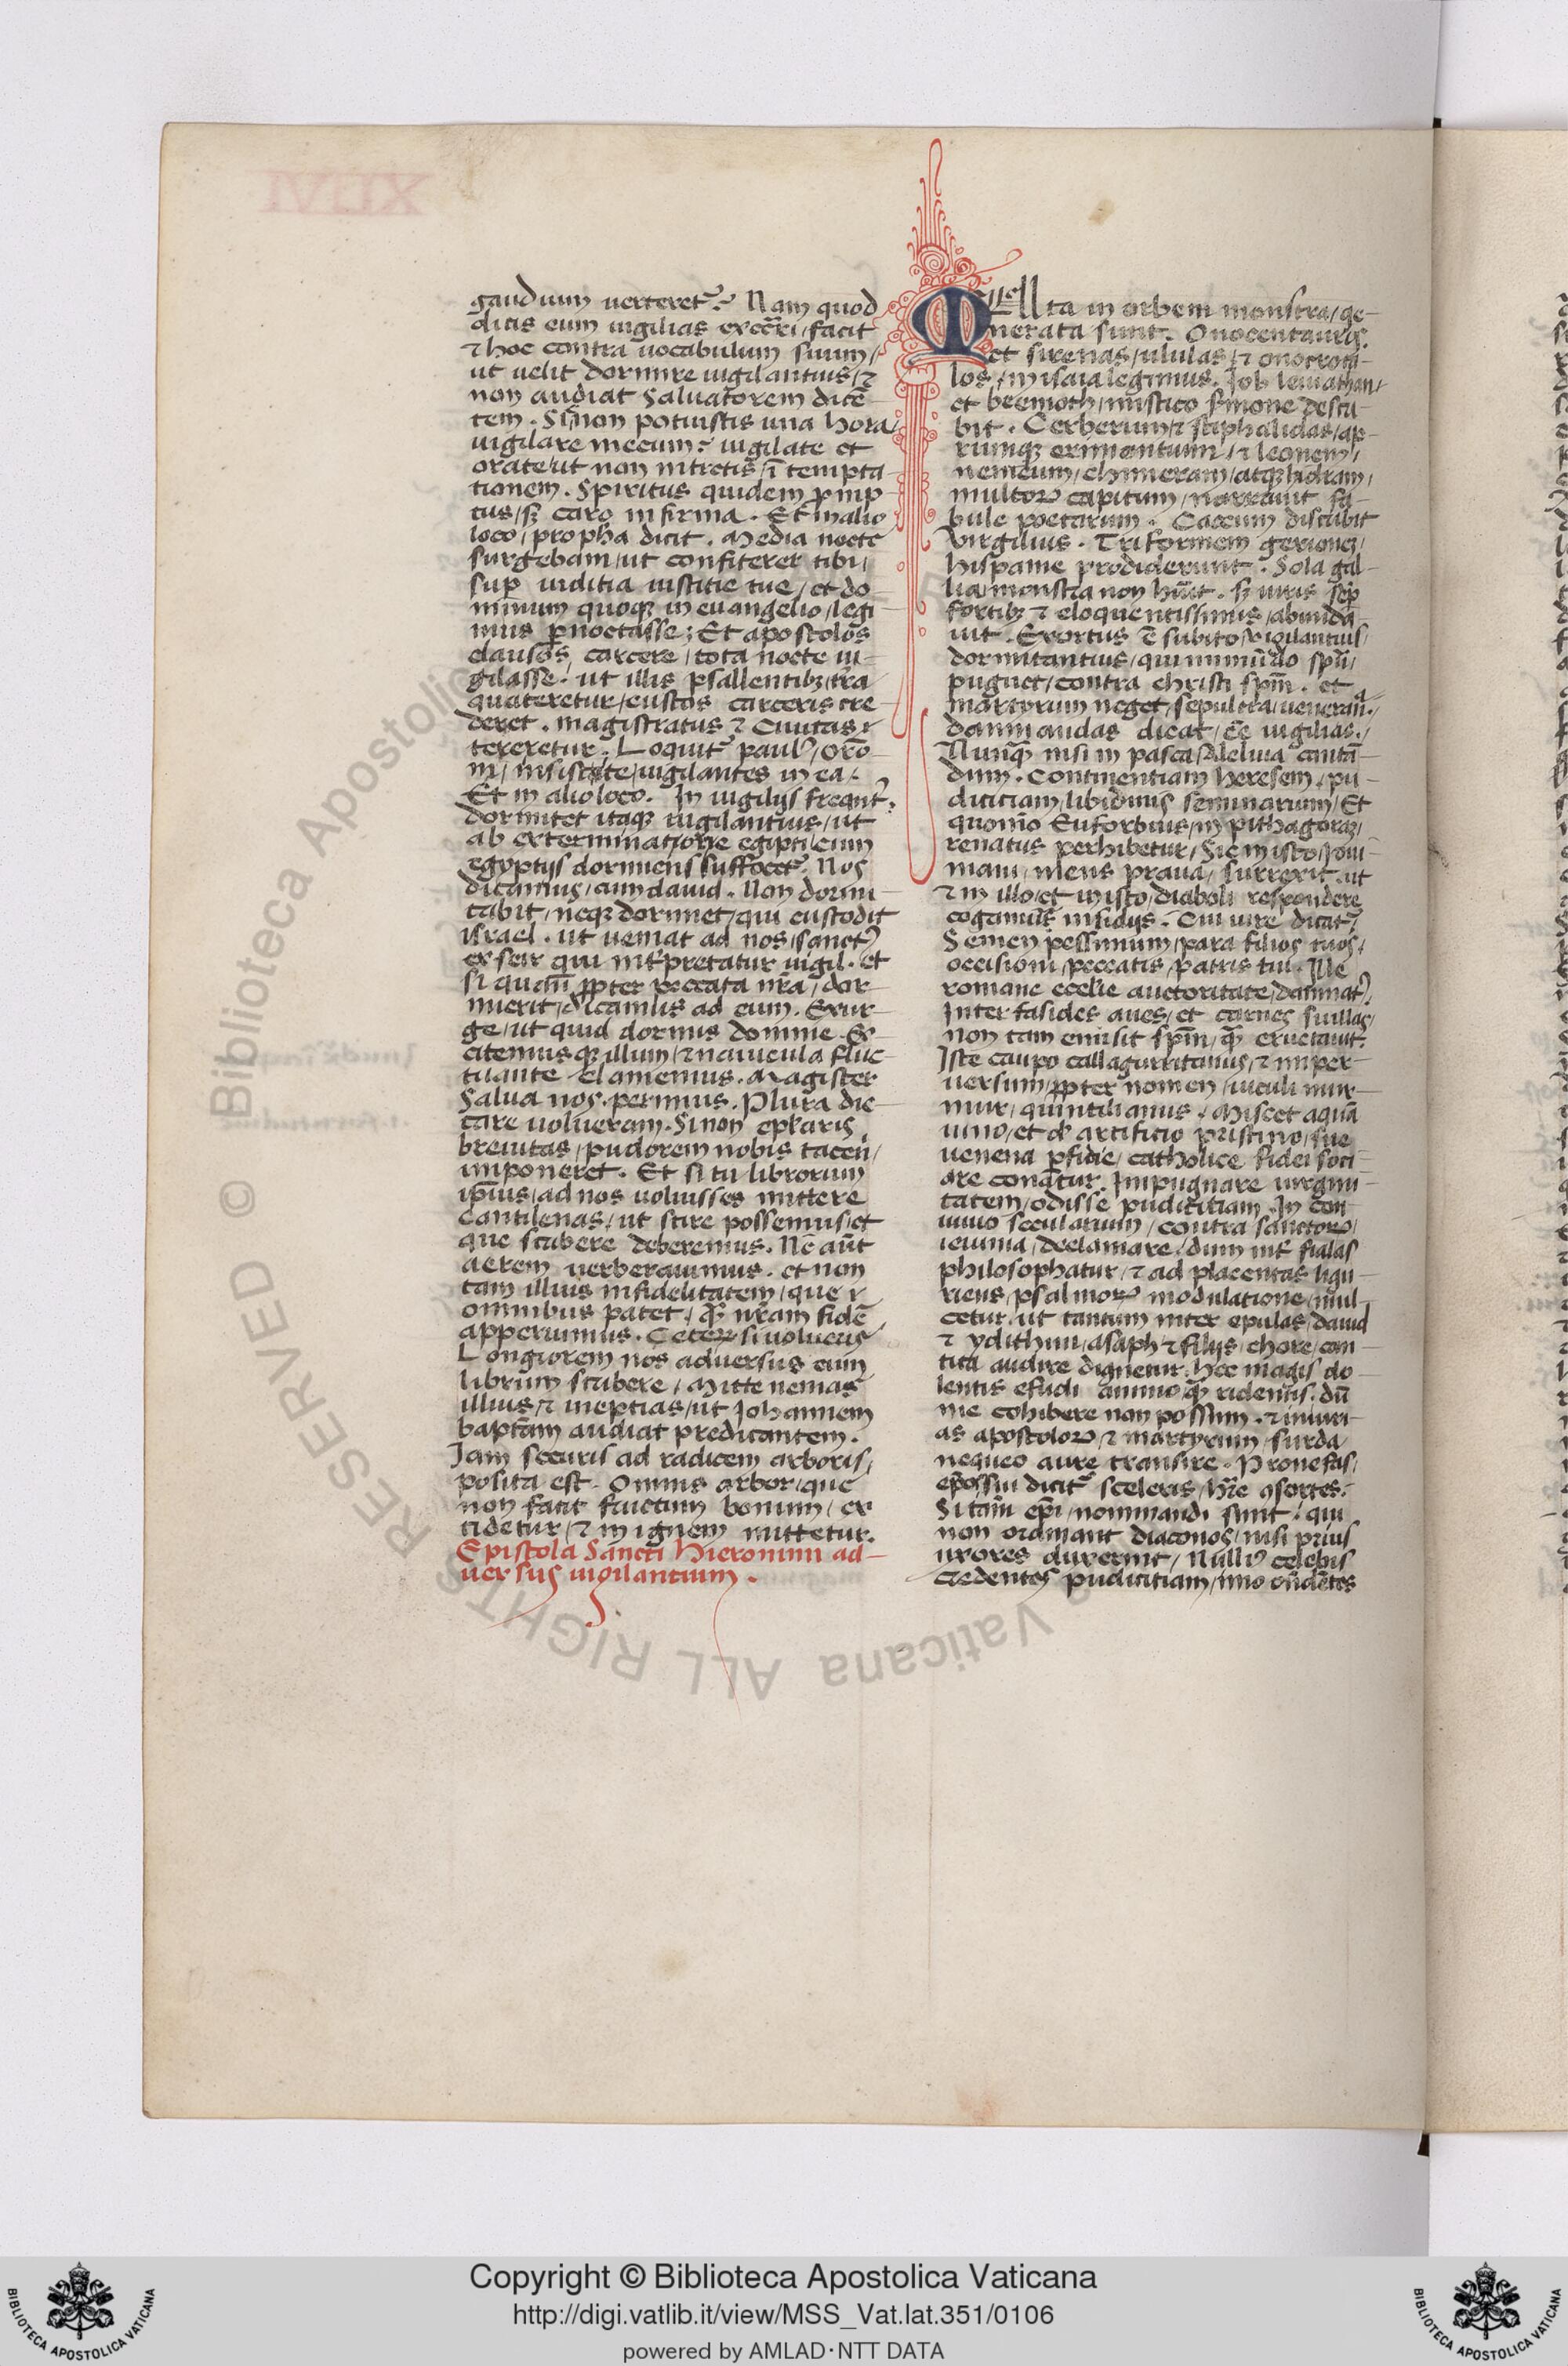 gaudium uerteret᷑? Nam quod
dicis eum uigilias exec̃ri / facit
⁊ hoc contra uocabulum suum /
ut uelit dormire uigilantius / ⁊
non audiat Saluatorem dicẽ-
tem. Sĩ non potuistis una hora /
uigilare mecum? uigilate et
orate / ut non intretis / ĩ tempta-
tionem. Spiritus quidem ꝓmp-
tus / sꝫ caro infirma. Et in alio
loco / propha dicit. Media nocte
surgebam / ut confiterer tibi /
suꝑ iuditia iustitie tue / et do
minum quoqꝫ in euangelio / legi
mus ꝑnoctasse; Et apostolos
clausos carcere / tota nocte ui-
gilasse. ut illis psallentibꝫ / tr̃a
quateretur / custos carceris cre
deret. magistratus ⁊ Ciuitas
tereretur. Loquit᷑ paulꝰ / orõ-
ni / insistite / uigilantes in ea.
Et in alio loco. In uigilijs freqnt᷑.
dormitet itaqꝫ uigilantius / ut
ab exterminatione egipti / cum
egyptijs dormiens suffocet᷑. Nos
dicamus / cum dauid. Non dormi-
tabit / neqꝫ dormiet / qui custodit
israel. ut ueniat ad nos / sanctꝰ
ex seir qui int᷑pretatur uigil. et
si quañ ꝓpter peccata nr̃a / dor-
mierit / dicamus ad eum. Exur-
ge / ut quid dormis domine. Ex-
citemusqꝫ illum / ⁊ nauicula fluc-
tuante clamemus. Magister
Salua nos. perimus. Plura dic-
tare uolueram. Si non epl̃aris
breuitas / pudorem nobis tacen̄ /
imponeret. Et si tu librorum
ip̃ius / ad nos uoluisses mittere
Cantilenas / ut scire possemus / et
que scribere deberemus. Nẽ aũt
aerem uerberauimus. et non
tam illius infidelitatem / que
omnibus patet / qꝫ nr̃am fidẽ
apperiuimus. Ceterꝝ si uolueris
Longiorem nos aduersus eum
librum scribere / Mitte nenias
illius / ⁊ ineptias / ut Johannem
baptãm audiat predicantem.
Jam securis ad radicem arboris /
posita est. Omnis arbor / que
non facit fructum bonum / ex
cidetur / ⁊ in ignem mittetur.
Epistola Sancti Hieronimi ad-
uersus uigilantium.
MUlta in orbem monstra / ge-
nerata sunt. Onocentauros.
et sirenas / ululas / ⁊ onocrota-
los / in isaia legimus. Job leuiathan /
et beemoth / mistico s̃mone descri-
bit. Cerberum / ⁊ stiphalidas / ap-
riumqꝫ erimantum / ⁊ leonem /
nemeum / chimeram / atqꝫ hidram /
multoꝝ capitum / narrant fa-
bule poetarum. Caccum discribit
Virgilius. Triformem gerionez /
hispanie prodiderunt. Sola gal-
lia / monstra non hũit. sꝫ uiris sep̃
fortibꝫ ⁊ eloquentissimis / abunda
uit. Exortus ẽ subito / uigilantius /
dormitantius / qui immũdo spũ /
pugnet / contra christi spm̃. et
martyrum neget / sepultra / uenerañ. /
damnandas dicat / eẽ uigilias. /
Nunqꝫ nisi in pasca / Alleluia cantã-
dum. Continentiam heresem. pu-
dicitiam / libidinis seminarium / Et
quomõ Euforbius / in pithagoraz /
renatus perhibetur / Sic in isto / Joui-
niani / mens praua / surrexit. ut
⁊ in illo / et in isto / diaboli respondere
cogamur insidijs. Cui iure dicit᷑?
Semen pessimum / para filios tuos /
occisioni / peccatis / patris tui. Ille
romane eccl̃ie auctoritate / damnatꝰ /
Inter fasides aues / et carnes suillas /
non tam emisit spm̃ / qꝫ eructauit.
Iste caupo callagurritanus / ⁊ in per-
uersum / ꝓpter nomen / uiculi mur-
mur / quintilianus. Miscet aquã
uino / et d̃ artificio pristino / sue
uenena ꝑfidie / catholice fidei soci-
are conat̃ur. Impugnare uirgini-
tatem / odisse pudicitiam. In con-
uiuio secularium / contra sanctoꝝ /
ieiunia / declamare. dum int᷑ fialas
philosophatur / ⁊ ad placentas ligu-
riens / psalmoꝝ modulatione / mul-
cetur. ut tantum inter epulas / dauid
⁊ ydithun / asaph / ⁊ filijs / chore / can-
tica audire dignetur. hec magis do-
lentis efudi animo / qꝫ ridentis. dũ
me cohibere non possum. ⁊ iniuri-
as apostoloꝝ / ⁊ martyrum / surda
nequeo aure transire. Pro nefas /
ep̃os sui dicit᷑ sceleris / hr̃e ꝯsortes.
Si tam̃ ep̃i / nominandi sunt! qui
non ordinant diaconos / nisi prius
uxores duxerint / Nulliꝰ celebis
credentes pudicitiam / imo oñdẽtes
Copyright © Biblioteca Apostolica Vaticana
http://digi.vatlib.it/view/MSS_Vat.lat.351/0106
powered by AMLAD·NTT DATA
BIBLIOTECA APOSTOLICA VATICANA
BIBLIOTECA APOSTOLICA VATICANA
© Biblioteca Apostolica Vaticana ALL RIGHTS RESERVED